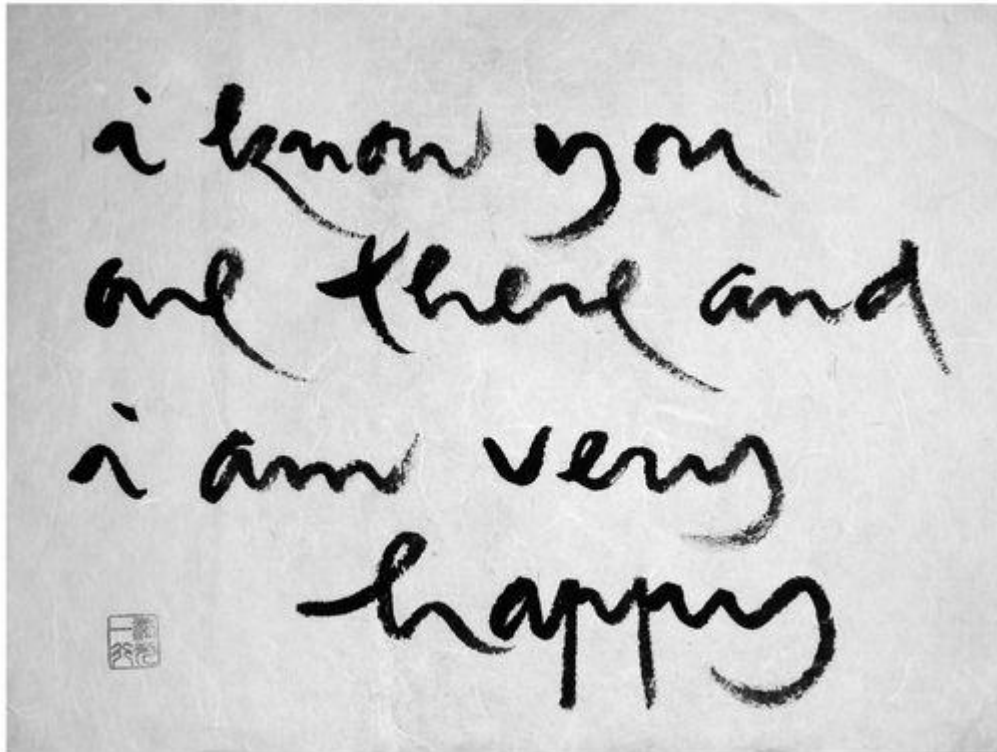 i know you
are there and
i am very
happy